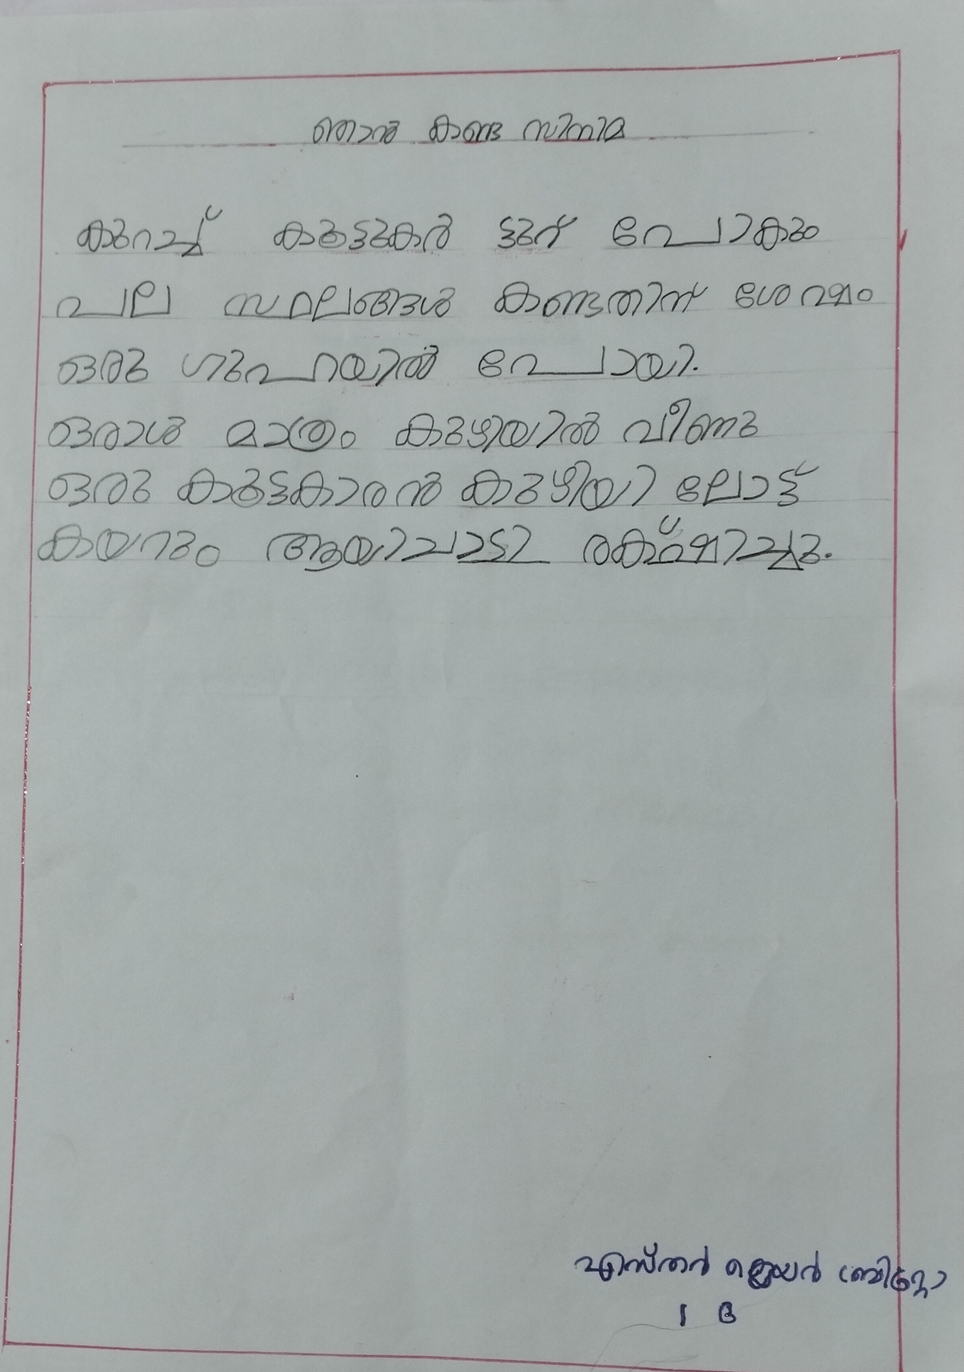 ഞാൻ കണ്ട സിനിമ
കുറച്ച് കുട്ടുകർ ട്ടൂന് പോകും
പല സ്ഥലങ്ങൾ കണ്ടതിന് ശേഷം
ഒരു ഗുഹയിൽ പോയി.
ഒരാൾ മാത്രം കുഴിയിൽ വീണു
ഒരു കുട്ടകാരൻ കുഴിയി ലോട്ട്
കയറും ആയി ചാടി രക്ഷിച്ചു.
എസ്തർ ക്ലെയർ
1 B